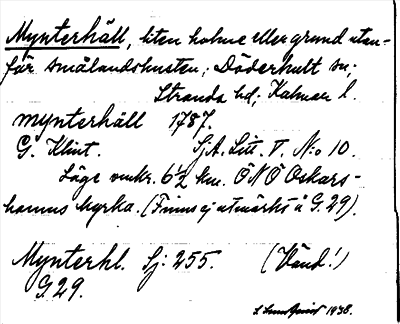 Mynterhäll, liten holme eller grund utan-
för Smålandskusten; Döderhult sn;
Stranda hd; Kalmar l.
mynterhäll 1787.
G. Klint. SjA. Litt. V. N:o 10.
Läge omkr. 6½ km. ÖNÖ Oskars-
hamns kyrka. (Finns ej utmärkt å G.29).
Mynterhl. Sj: 255. (Vänd!)
G.29.
1938.